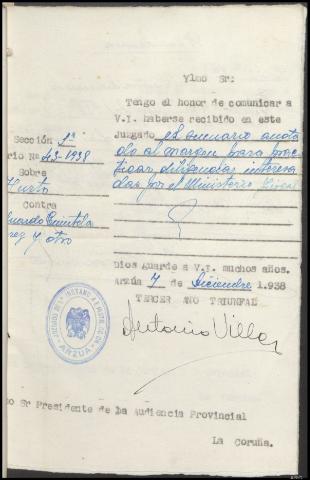 Ylmo Sr:
Tengo el honor de comunicar a
V.I. haberse recibido en este
Juzgado el sumario anota
do al margen para prac
ticar diligencias interesa
das por el Ministerio Fiscal
Sección 1ª
rio Nº 43-1938
Sobre
Hurto
Contra
uardo Quintela
rez y otro
Dios guarde a V.I. muchos años.
Arzúa 7 de Diciembre 1.938
TERCER AÑO TRIUNFAL
Antonio Villar
ARZUA
o Sr Presidente de la Audiencia Provincial
La Coruña.